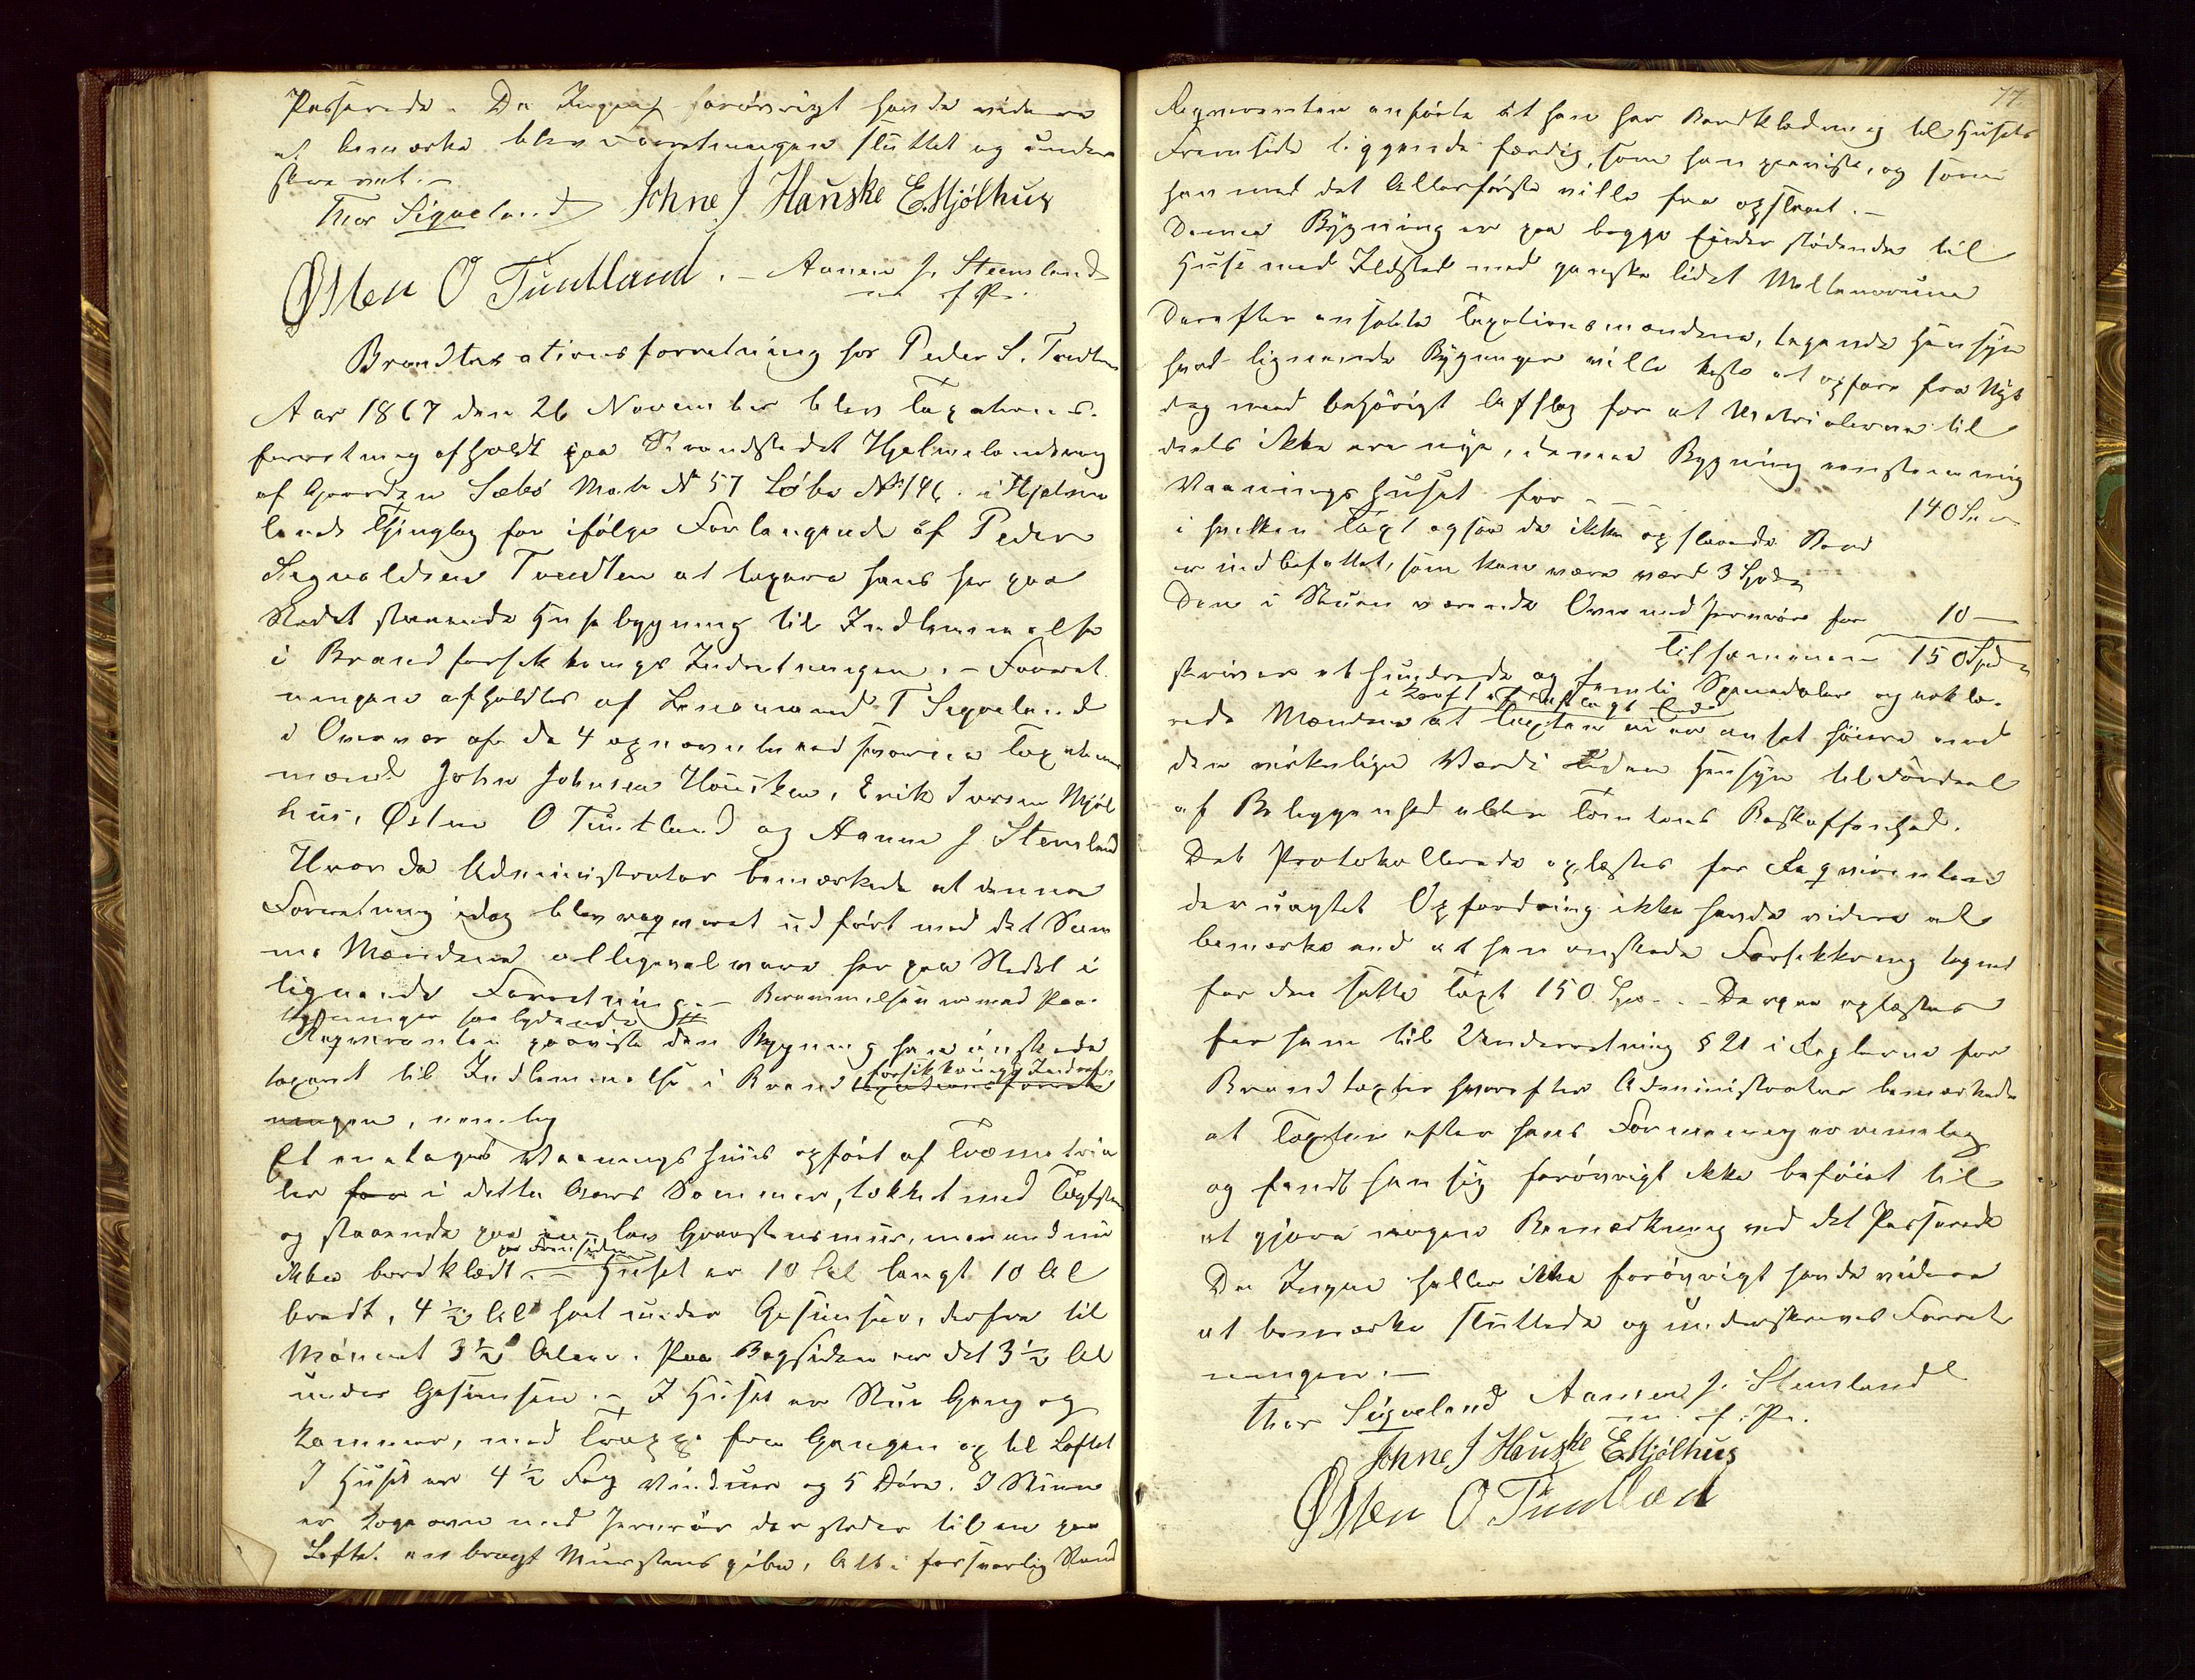 Passerede. Da Ingen forøvrigt havde videre
at bemærke blev Forretningen sluttet og under
skrevet.–
Thor Sigveland Johne J Hauske E. Mjølhus
Østen O Tuntland. – Aanen J. Steensland
m. f. P.
Brandtaxationsforretning for Peder S. Tvedten
Aar 1867 den 26 November blev Taxations-
forretning afholdt paa Strandstedet Hjelmelandsvaag
af Gaarden Sæbø Matr. N 57 Løbe N 146. i Hjelme
lands Thinglag for ifølge Forlangende af Peder
Sigvaldsen Tvedten at taxere hans her paa
Stedet staaende Husebygning til Indlemmelse
i Brandforsikkrings Indretningen. – Forret
ningen afholdtes af Lensmand T Sigveland
i Overvær af de 4 opnævnte edsvorne Taxations
mænd John Johnsen Hausken, Erik Iversen Mjøl
hus, Østen O Tuntland og Aanen J Stensland
Hvor da Administrator bemærkede at denne
Forretning idag blev reqvireret udført med det Sam
me Mændene alligevel vare her paa Stedet i
lignende Forretning. – Berammelsen med Paa-
tegninger saalydende #
Reqvirenten paaviste den Bygning han ønskede
taxeret til Indlemmelse i Brand forsikkrings Indret
taxationsforret
ningen, nemlig
Et en etages Vaaningshuus opført af Træmateria
ler for i dette Aars Sommer, tækket med Tagsten
og staaende paa en lav Graastensmur, men endnu
ikke bordklædt paa Fremsiden. – Huset er 10 Al langt 10 Al
bredt, 4 ½ Al høit under Gesimsen, derfra til
Mønnet 3 ½ Alen. Paa Bagsiden er det 3 ½ Al
under Gesimsen. – I Huset er Stue Gang og
Kammer, med Trappe fra Gangen op til Loftet
I Huset er 4 ½ Fag Vinduer og 5 Døre. I Stuen
er Kogeovn med Jernrør der støder til en paa
Loftet anbragt Murstens pibe, Alt i forsvarlig Stand
77.
Reqvirenten anførte at han har Bordklædning til Husets
Fremside liggende færdig, som han paaviste, og som
han med det Allerførste ville faa opslaaet. –
Denne Bygning er paa begge Ender stødende til
Huse med Ildsted med ganske lidet Mellemrum
Derefter ansatte Taxationsmændene, tagende Hensyn
hvad lignende Bygninger ville koste at opføre fra Nyt
dog med behørigt Afslag for at Materialerne til
deels ikke ere nye, denne Bygning eenstemmig
Vaaningshuset for – – 140 Spd
i hvilken Taxt ogsaa de ikke opslaaede Bord
er indbefattet, som kan være værd 3 Spd
Den i Stuen værende Ovn med Jernrør for 10 –
Tilsammen 150 Spd
skriver et hundrede og femti Speciedaler og erklæ-
i Kraft af aflagt Eed
rede Mændene at Taxten ei er ansat høiere end
den virkelige Værdi uden Hensyn til Fordeel
af Beliggenhed eller Tomtens Beskaffenhed.
Det Protokollerede oplæstes for Reqvirenten
der uagtet Opfordring ikke havde videre at
bemærke end at han ønskede Forsikkring tegnet
for den satte Taxt 150 Spd. – Derpaa oplæstes
for ham til Underretning § 21 i Reglerne for
Brandtaxter hvorefter Administrator bemærkede
at Taxten efter hans Formening er rimelig
og fandt han sig forøvrigt ikke beføiet til
at gjøre nogen Bemærkning ved det Passerede
Da Ingen heller ikke forøvrigt havde videre
at bemærke sluttede og underskreves Forret
ningen. –
Thor Sigveland Aanen J. Stensland
m. f. P.
Johne J Hauske E Mjølhus
Østen O Tuntland